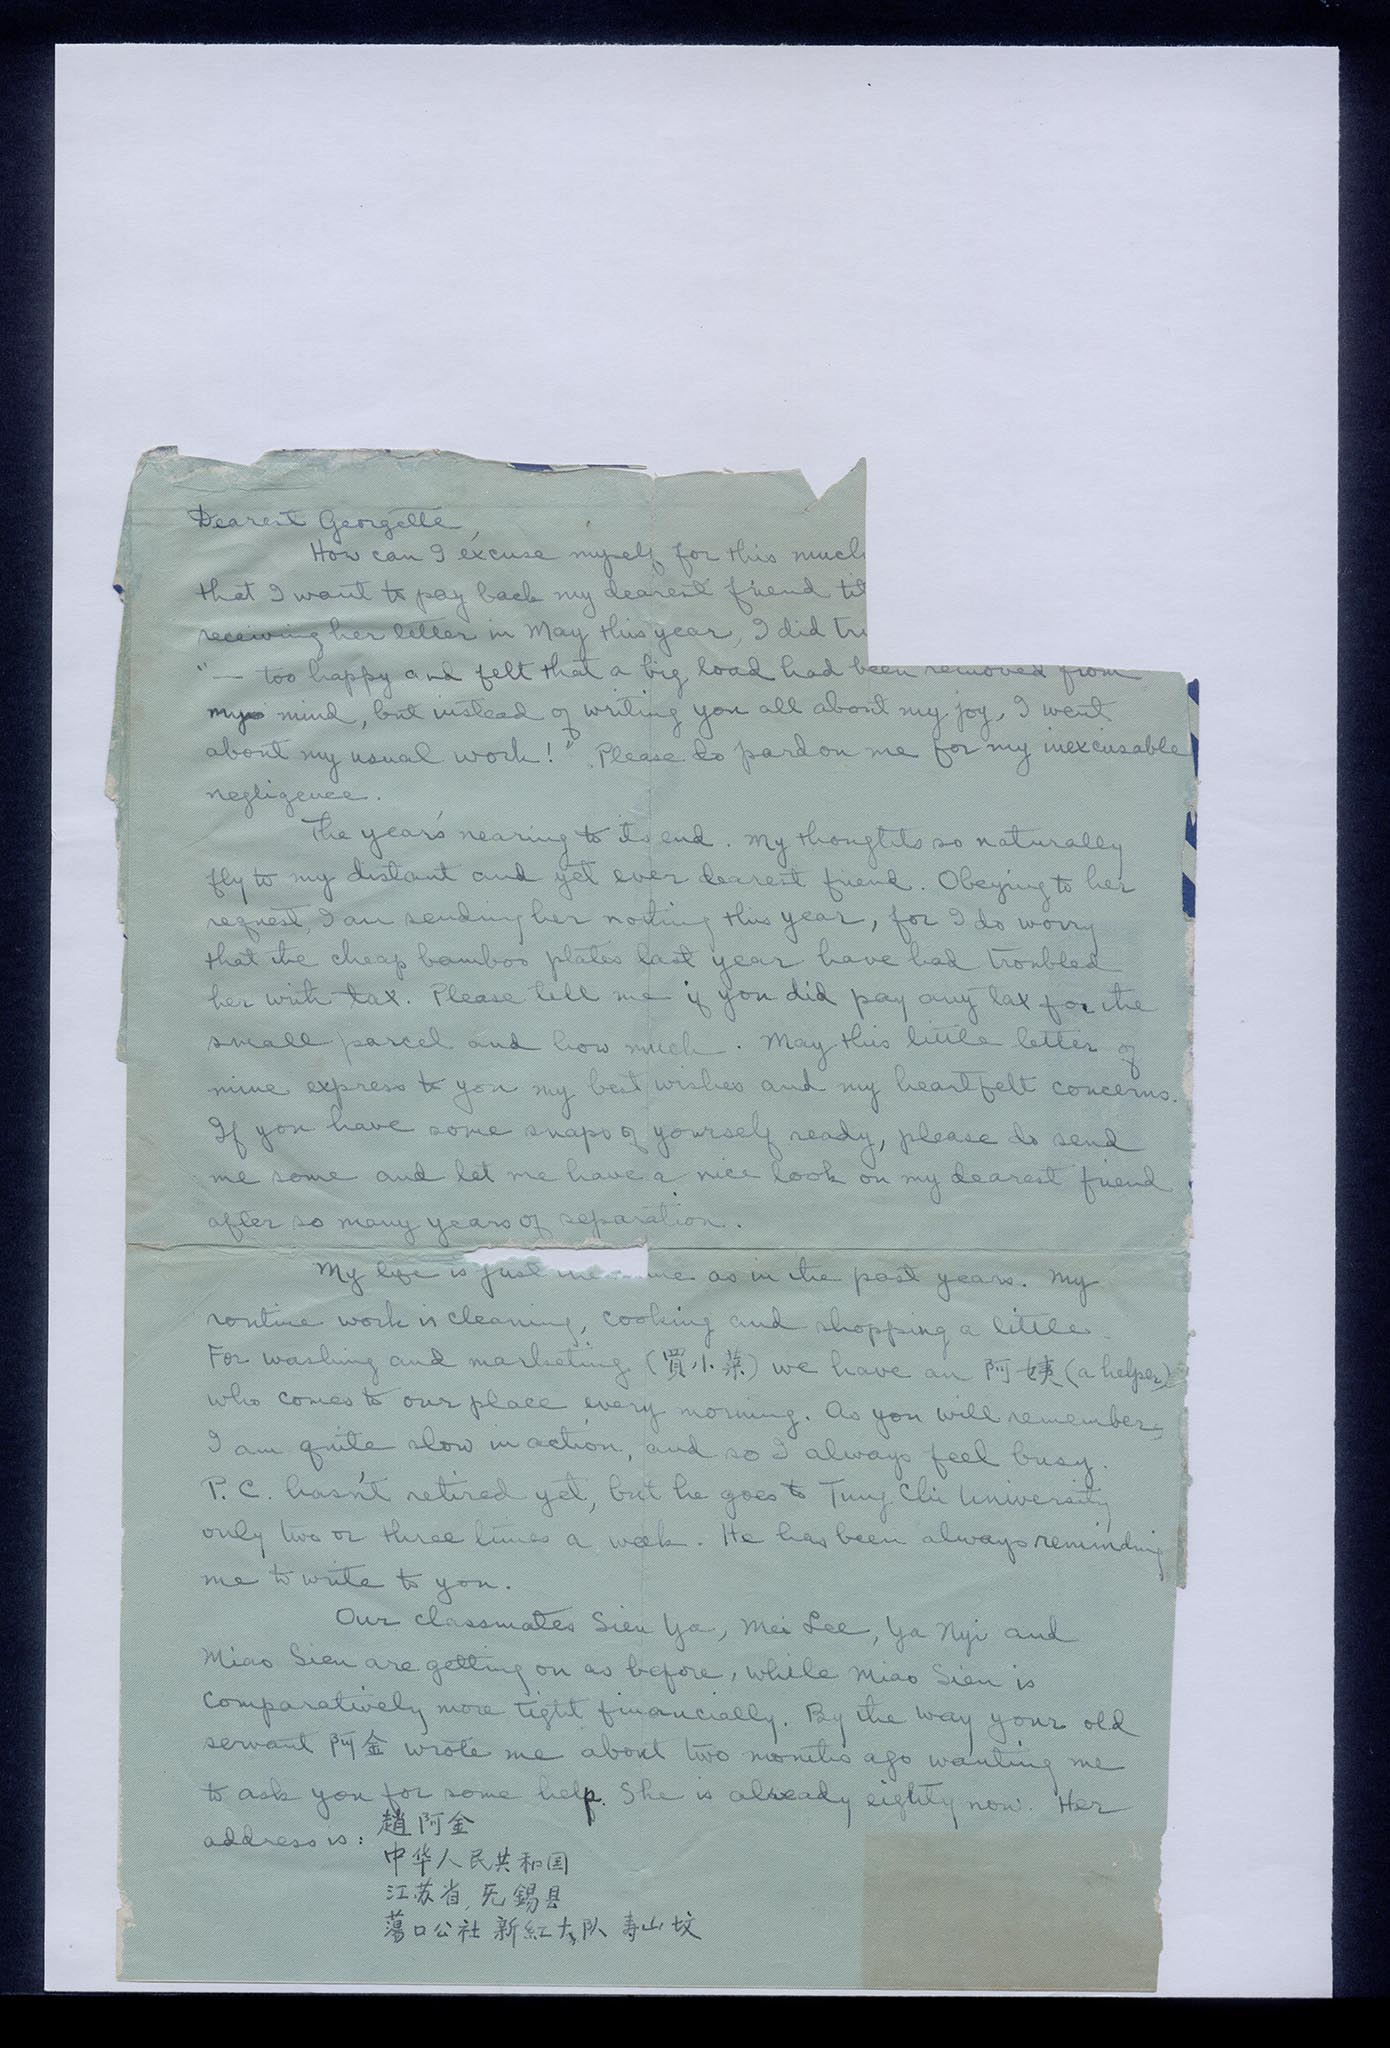 Dearest Georgette,
How can I excuse myself for this much
that I want to pay back my dearest friend
receiving her letter in May this year, I did
"— too happy and felt that a big load had been removed from
my mind, but instead of writing you all about my joy, I went
about my usual work!" Please do pardon me for my inexcusable
negligence.
The year's nearing to its end. My thoughts so naturally
fly to my distant and yet ever dearest friend. Obeying to her
request, I am sending her nothing this year, for I do worry
that the cheap bamboo plates last year have had troubled
her with tax. Please tell me if you did pay any tax for the
small parcel and how much. May this little letter of
mine express to you my best wishes and my heartfelt concerns.
If you have some snaps of yourself ready, please do send
me some and let me have a nice look on my dearest friend
after so many years of separation.
My life is just as in the past years. My
routine work is cleaning, cooking and shopping a little.
For washing and marketing (買小菜) we have an 阿姨 (a helper)
who comes to our place every morning. As you will remember,
I am quite slow in action, and so I always feel busy.
P. C. hasn't retired yet, but he goes to Tung Chi University
only two or three times a week. He has been always reminding
me to write to you.
Our classmates Sien Ya, Mei Lee, Ya Nyi and
Miao Sien are getting on as before, while Miao Sien is
comparatively more tight financially. By the way your old
servant 阿金 wrote me about two months ago wanting me
to ask you for some help. She is already eighty now. Her
address is: 趙阿金
中华人民共和国
江苏省, 无錫县
蕩口公社 新紅大队 寿山坟